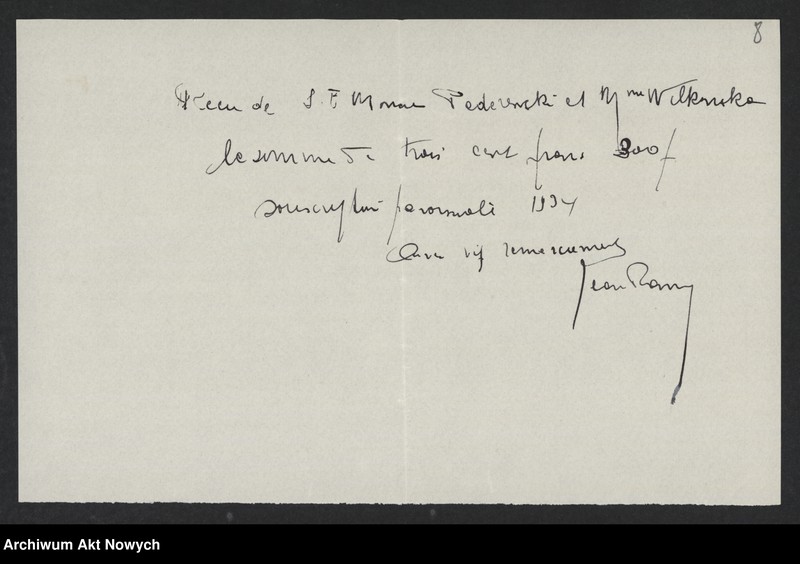 8
Reçu de S. E Monsieur Paderewski et Mme Wilkonska
la somme de trois cent francs 300 f
souscription paroissiale 1934
Avec vifs remerciements
Jean
Archiwum Akt Nowych